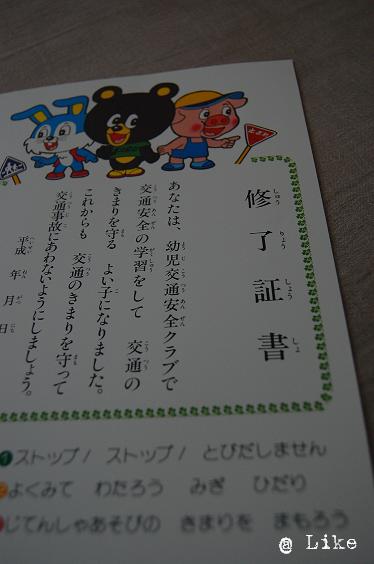 修了証書
あなたは、幼児交通安全クラブで
交通安全の学習をして 交通の
きまりを守る よい子になりました。
これからも 交通のきまりを守って
交通事故にあわないようにしましょう。
平成 年 月 日
1 ストップ! ストップ! とびだしません
よくみて わたろう みぎ ひだり
じてんしゃあそびの きまりを まもろう
@ Like